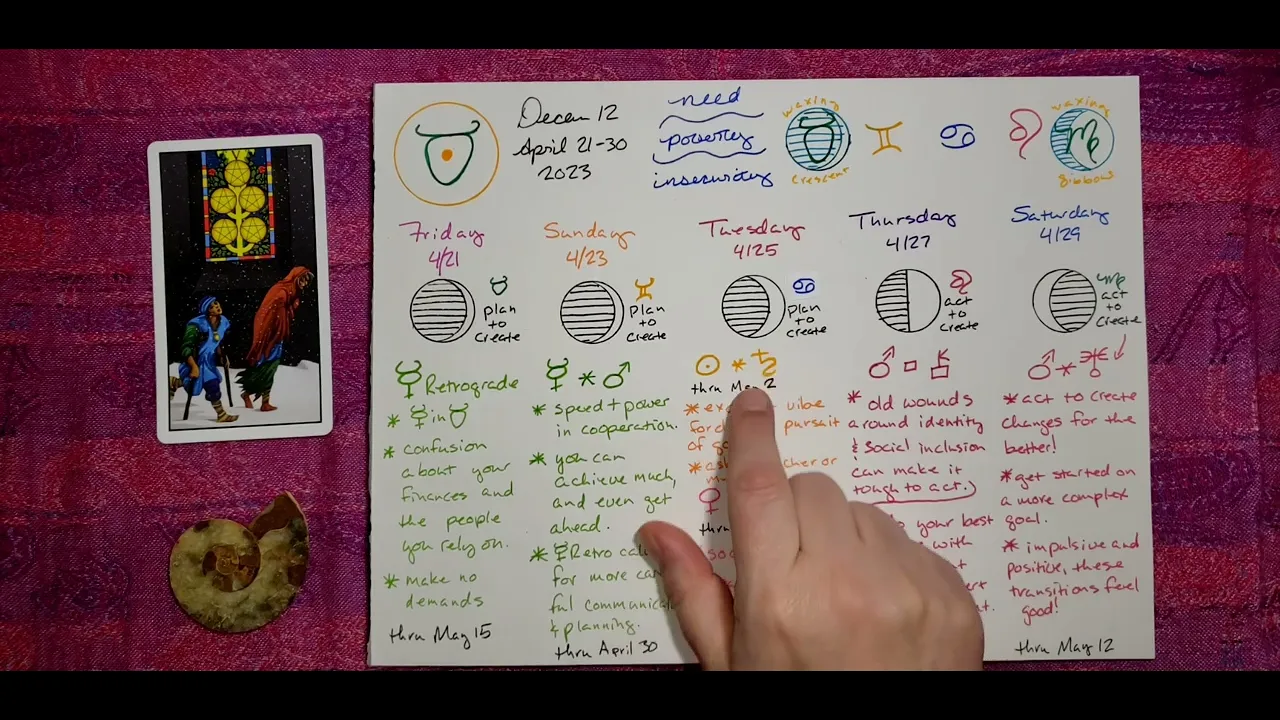 Decan 12
April 21-30
2023
need
poverty
insecurity
waxing
crescent
waxing
gibbous
Friday
4/21
plan
to
create
Retrograde
* ☿ in ♉
* confusion
about your
finances and
the people
you rely on.
* make no
demands
thru May 15
Sunday
4/23
plan
to
create
☿ * ♂
* speed + power
in cooperation.
* you can
achieve much,
and even get
ahead.
* ☿ Retro
for more
ful
& planning.
thru April 30
Tuesday
4/25
plan
to
create
☉ * ♄
thru May 2
* vibe
for pursuit
of
* or
♀
thru
Thursday
4/27
act
to
create
♂ □
* old wounds
around identity
& social inclusion
can make it
tough to act.
your best
with
Saturday
4/29
act
to
create
♂ * ♅
* act to create
changes for the
better!
* get started on
a more complex
goal.
* impulsive and
positive, these
transitions feel
good!
thru May 12